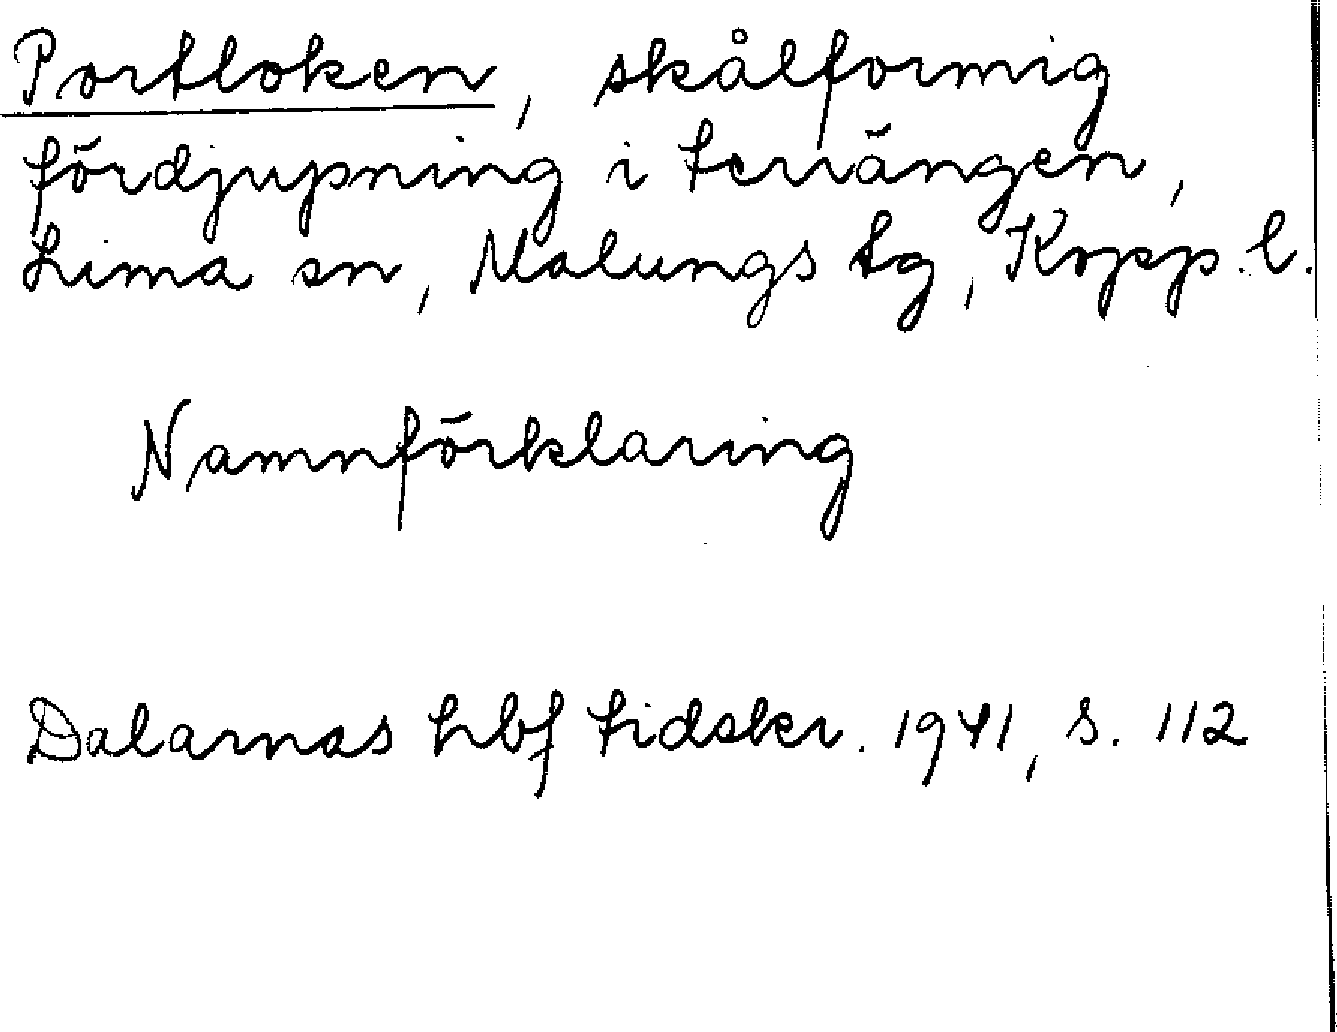 Portloken, skålformig
fördjupning i terrängen,
Lima sn, Malungs tg, Kopp. l.
Namnförklaring
Dalarnas hbf tidskr. 1941, s. 112